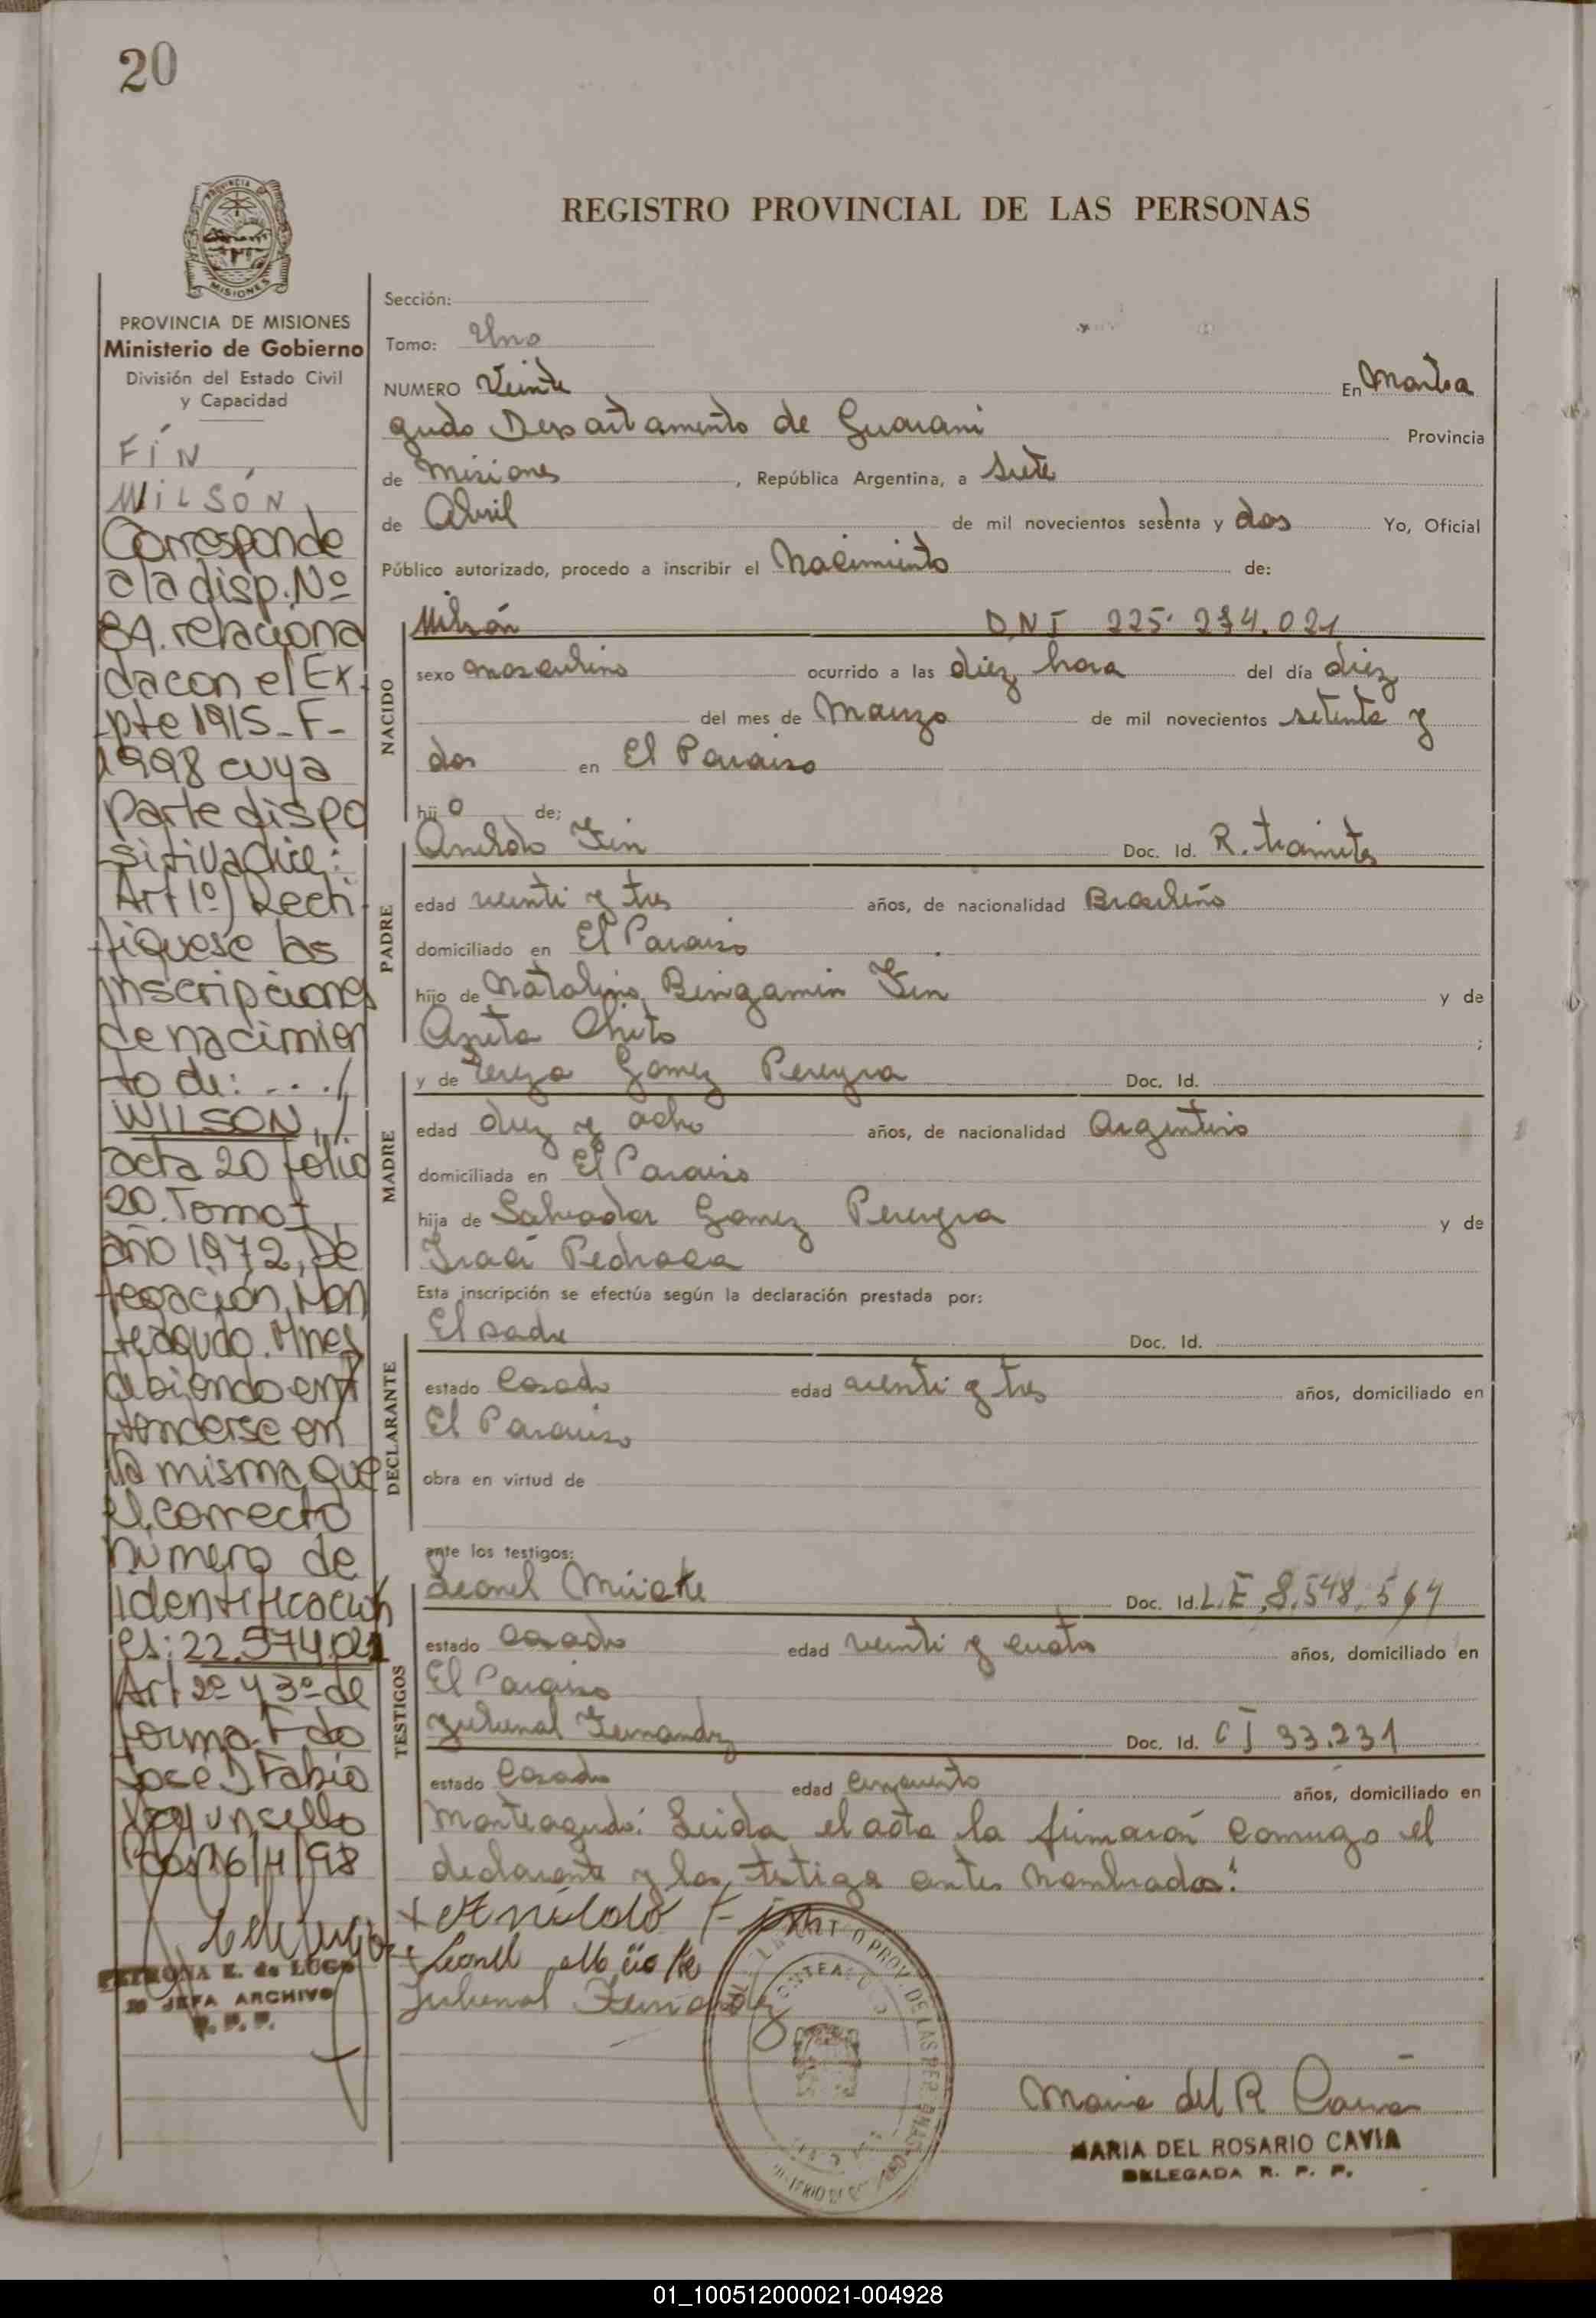 20
REGISTRO PROVINCIAL DE LAS PERSONAS
PROVINCIA DE MISIONES
Ministerio de Gobierno
División del Estado Civil
y Capacidad
FÍN
WILSÓN
Corresponde
a la disp. Nº
84. relaciona
da con el Ex-
pte 1915-F-
1998 cuya
parte dispo
sitiva dice:
Art 1º) Recti
fiquese las
inscripciones
de nacimien
to de: ....//
WILSON //.
acta 20 folio
20. Tomo I
año 1972, De
legación Mon
teagudo. Mnes
debiendo ent
tenderse en
la misma que
el correcto
número de
identificación
es: 22.574.021
Art 2º y 3º de
forma Fdo
Jose D Fabio
Pos 16/4/98
PETRONA E. de LUGO
JEFA ARCHIVO
R. P. P.
Sección:
Tomo: Uno
NUMERO Veinte En Montea
gudo Departamento de Guarani Provincia
de Misiones, República Argentina, a siete
de Abril de mil novecientos sesenta y dos Yo, Oficial
Público autorizado, procedo a inscribir el Nacimiento de:
NACIDO
Wilsón DNI 225.274.021
sexo masculino ocurrido a las diez hora del día diez
del mes de Marzo de mil novecientos setenta y
dos en El Paraiso
hijo de:
PADRE
Anildo Fin Doc. Id. R. tramites
edad veinti y tres años, de nacionalidad Brasileño
domiciliado en El Paraiso
hijo de Natalino Bingamin Fin y de
Aneta Chito;
MADRE
y de Tereza Gomez Pereyra Doc. Id.
edad diez y ocho años, de nacionalidad Argentino
domiciliada en El Paraiso
hija de Salvador Gomez Pereyra y de
Iraci Pedroca
Esta inscripción se efectúa según la declaración prestada por:
DECLARANTE
El padre Doc. Id.
estado Casado edad veinti y tres años, domiciliado en
El Paraiso
obra en virtud de
ante los testigos:
TESTIGOS
Leonel Doc. Id. L.E. 8.548.564
estado Casado edad veinti y cuatro años, domiciliado en
El Paraiso
Juvenal Fernandez Doc. Id. CI 33.231
estado Casado edad cincuenta años, domiciliado en
Monteagudo: Leida el acta la firmarón conmigo el
declarante y los testigo antes nombrados.
+ Anildo Fin
+ Leonel
Juvenal Fernandez
Maria del R Cavia
MARIA DEL ROSARIO CAVIA
DELEGADA R. P. P.
01_100512000021-004928